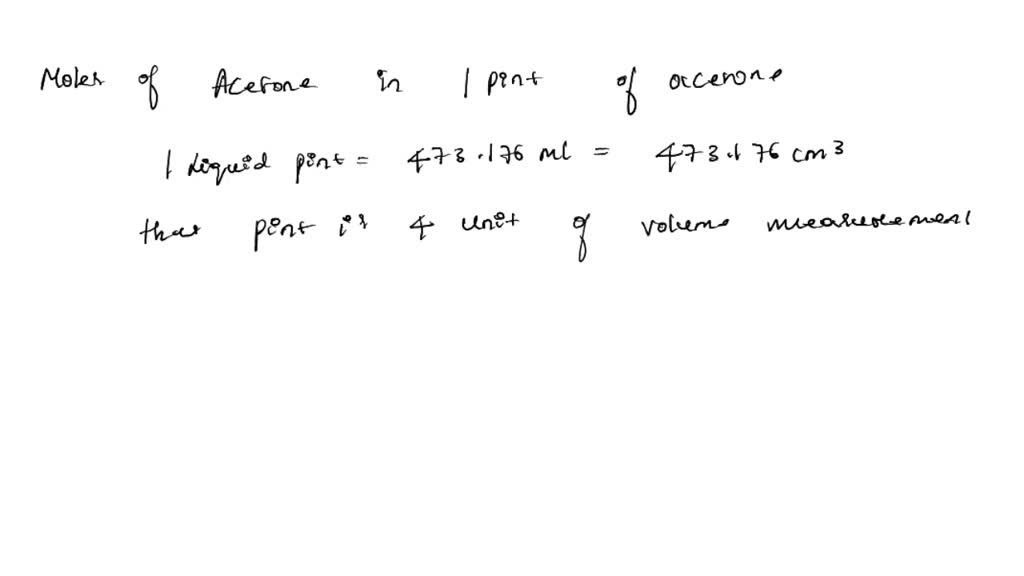 Moles of Acetone in 1 pint of acetone
1 liquid pint = 473.176 ml = 473.176 cm3
that pint is a unit of volume measurement